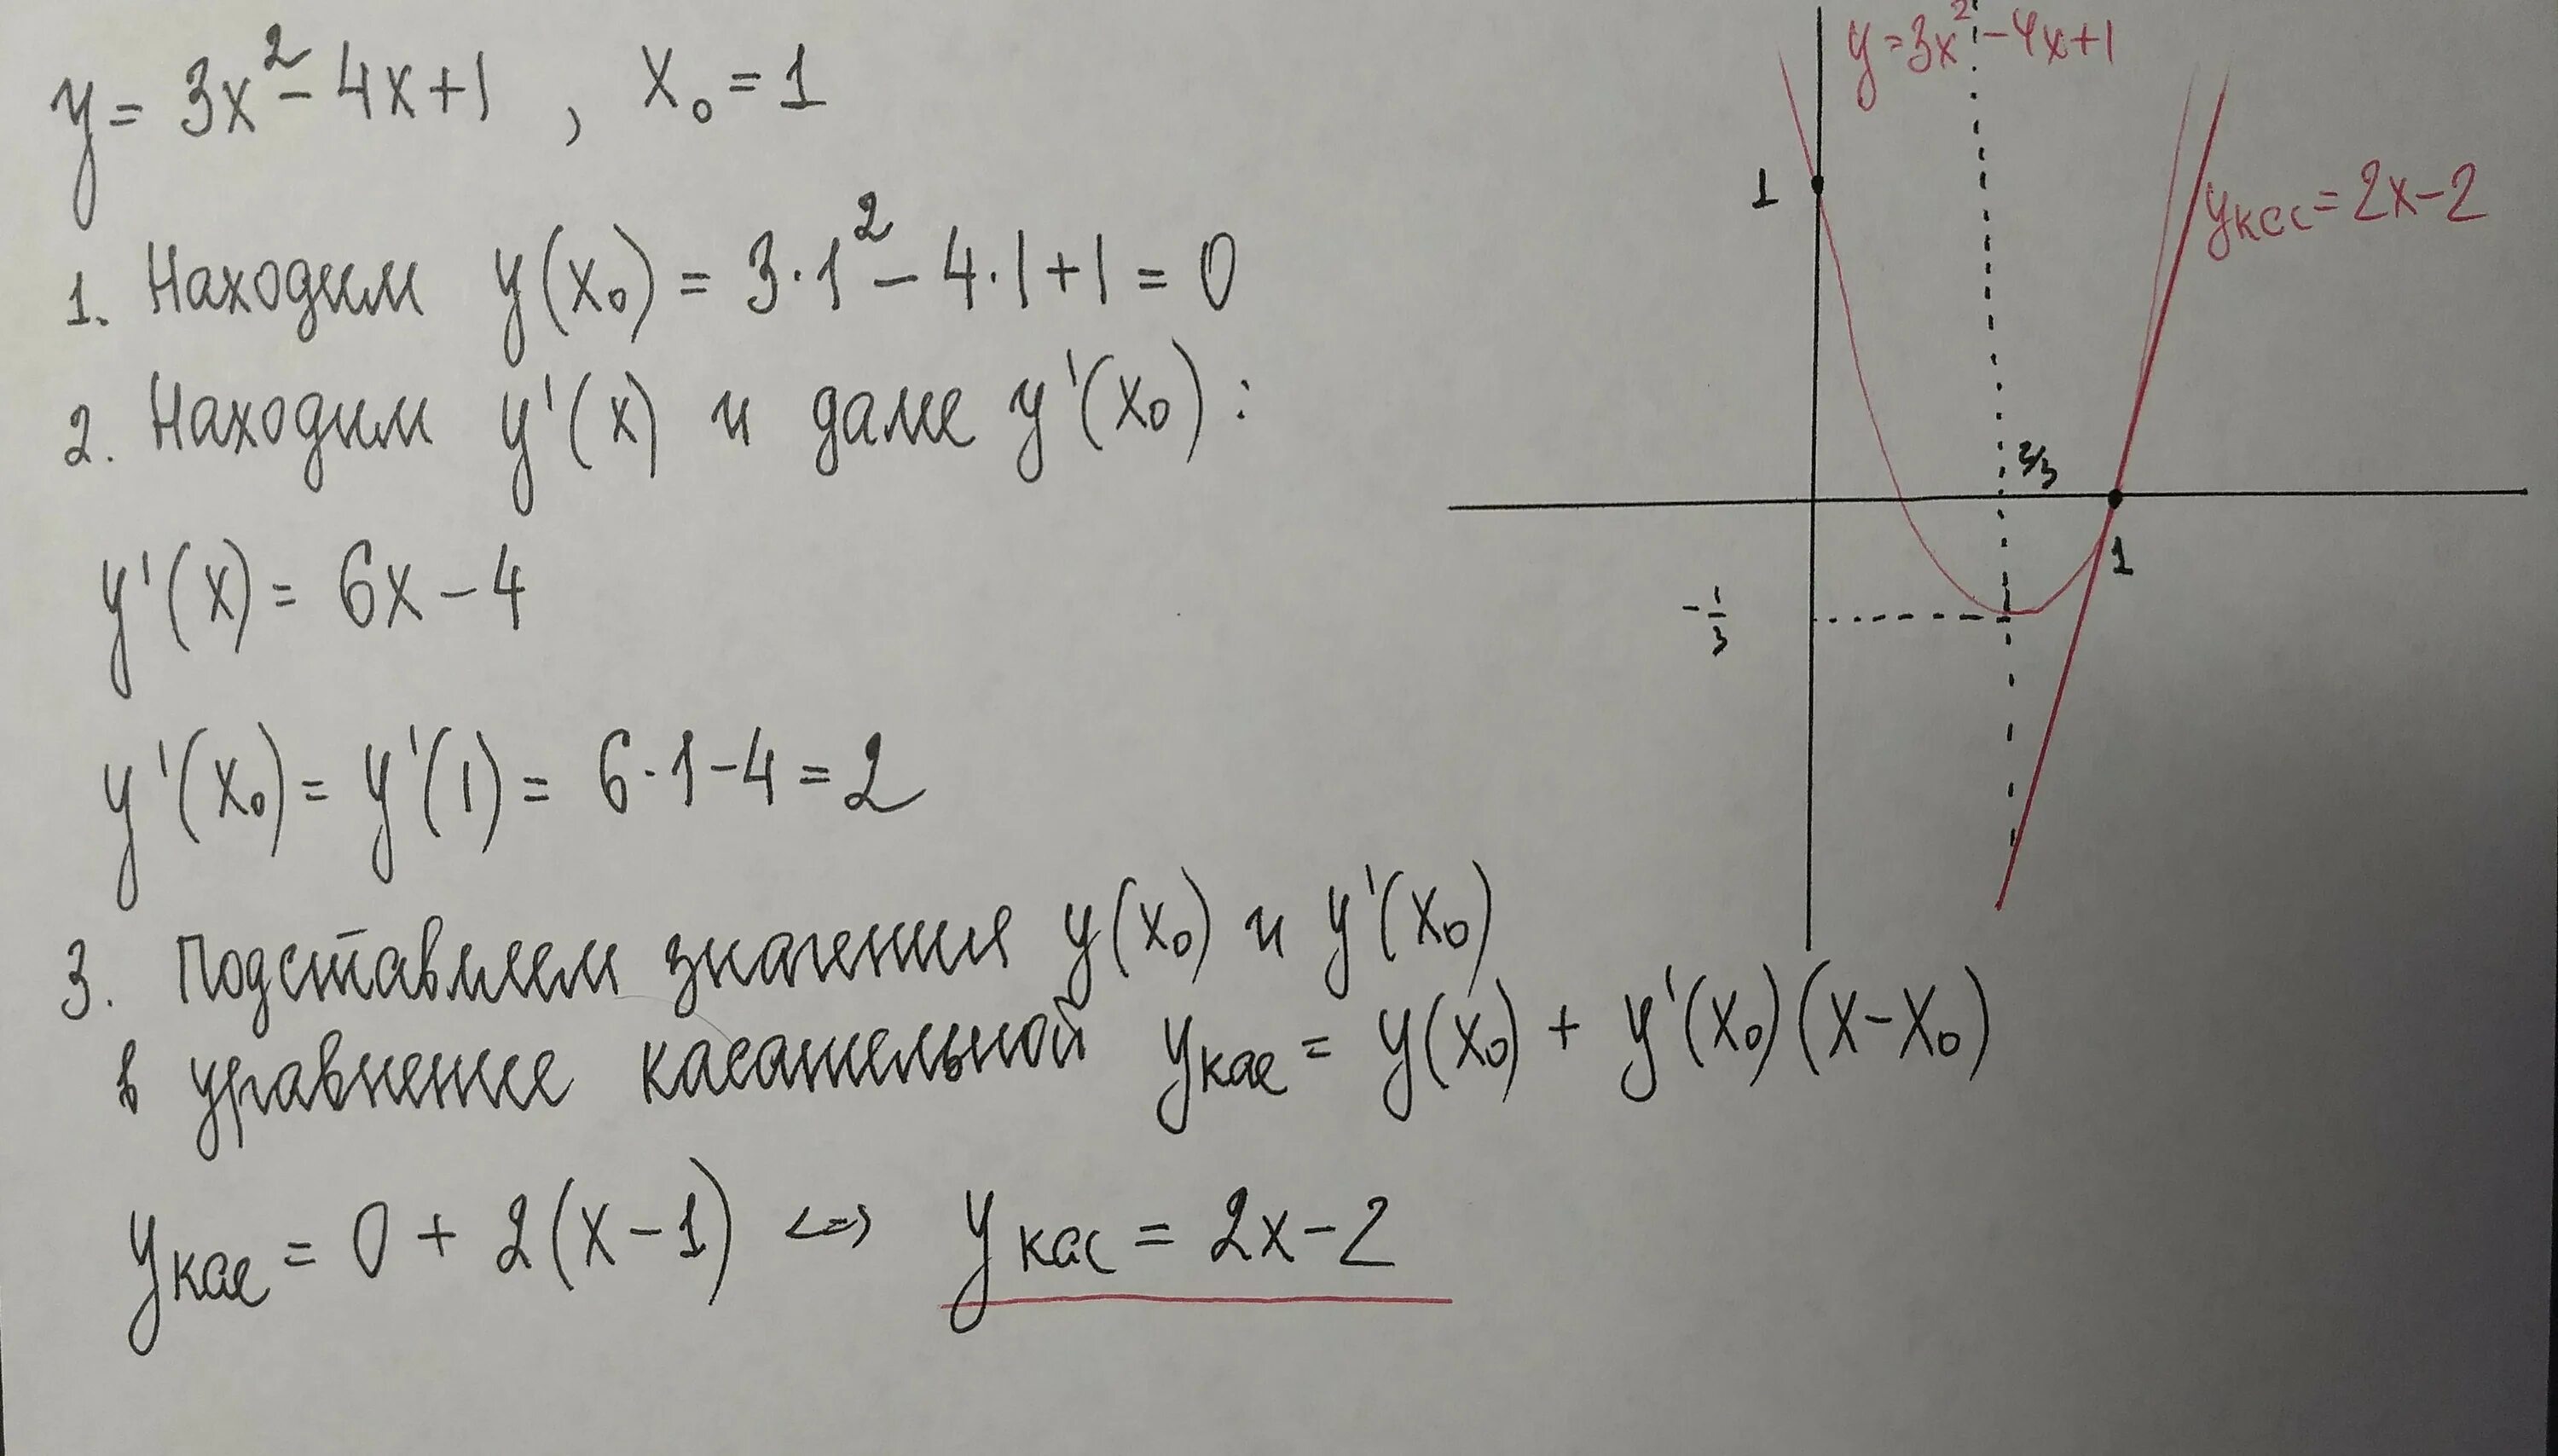 y = 3x² - 4x + 1 , x₀ = 1
1. Находим y(x₀) = 3·1² - 4·1 + 1 = 0
2. Находим y'(x) и далее y'(x₀):
y'(x) = 6x - 4
y'(x₀) = y'(1) = 6·1 - 4 = 2
3. Подставляем значения y(x₀) и y'(x₀)
в уравнение касательной yкас = y(x₀) + y'(x₀)(x - x₀)
yкас = 0 + 2(x - 1) <=> yкас = 2x - 2
y = 3x² - 4x + 1
1
yкас = 2x - 2
2/3
1
-1/3